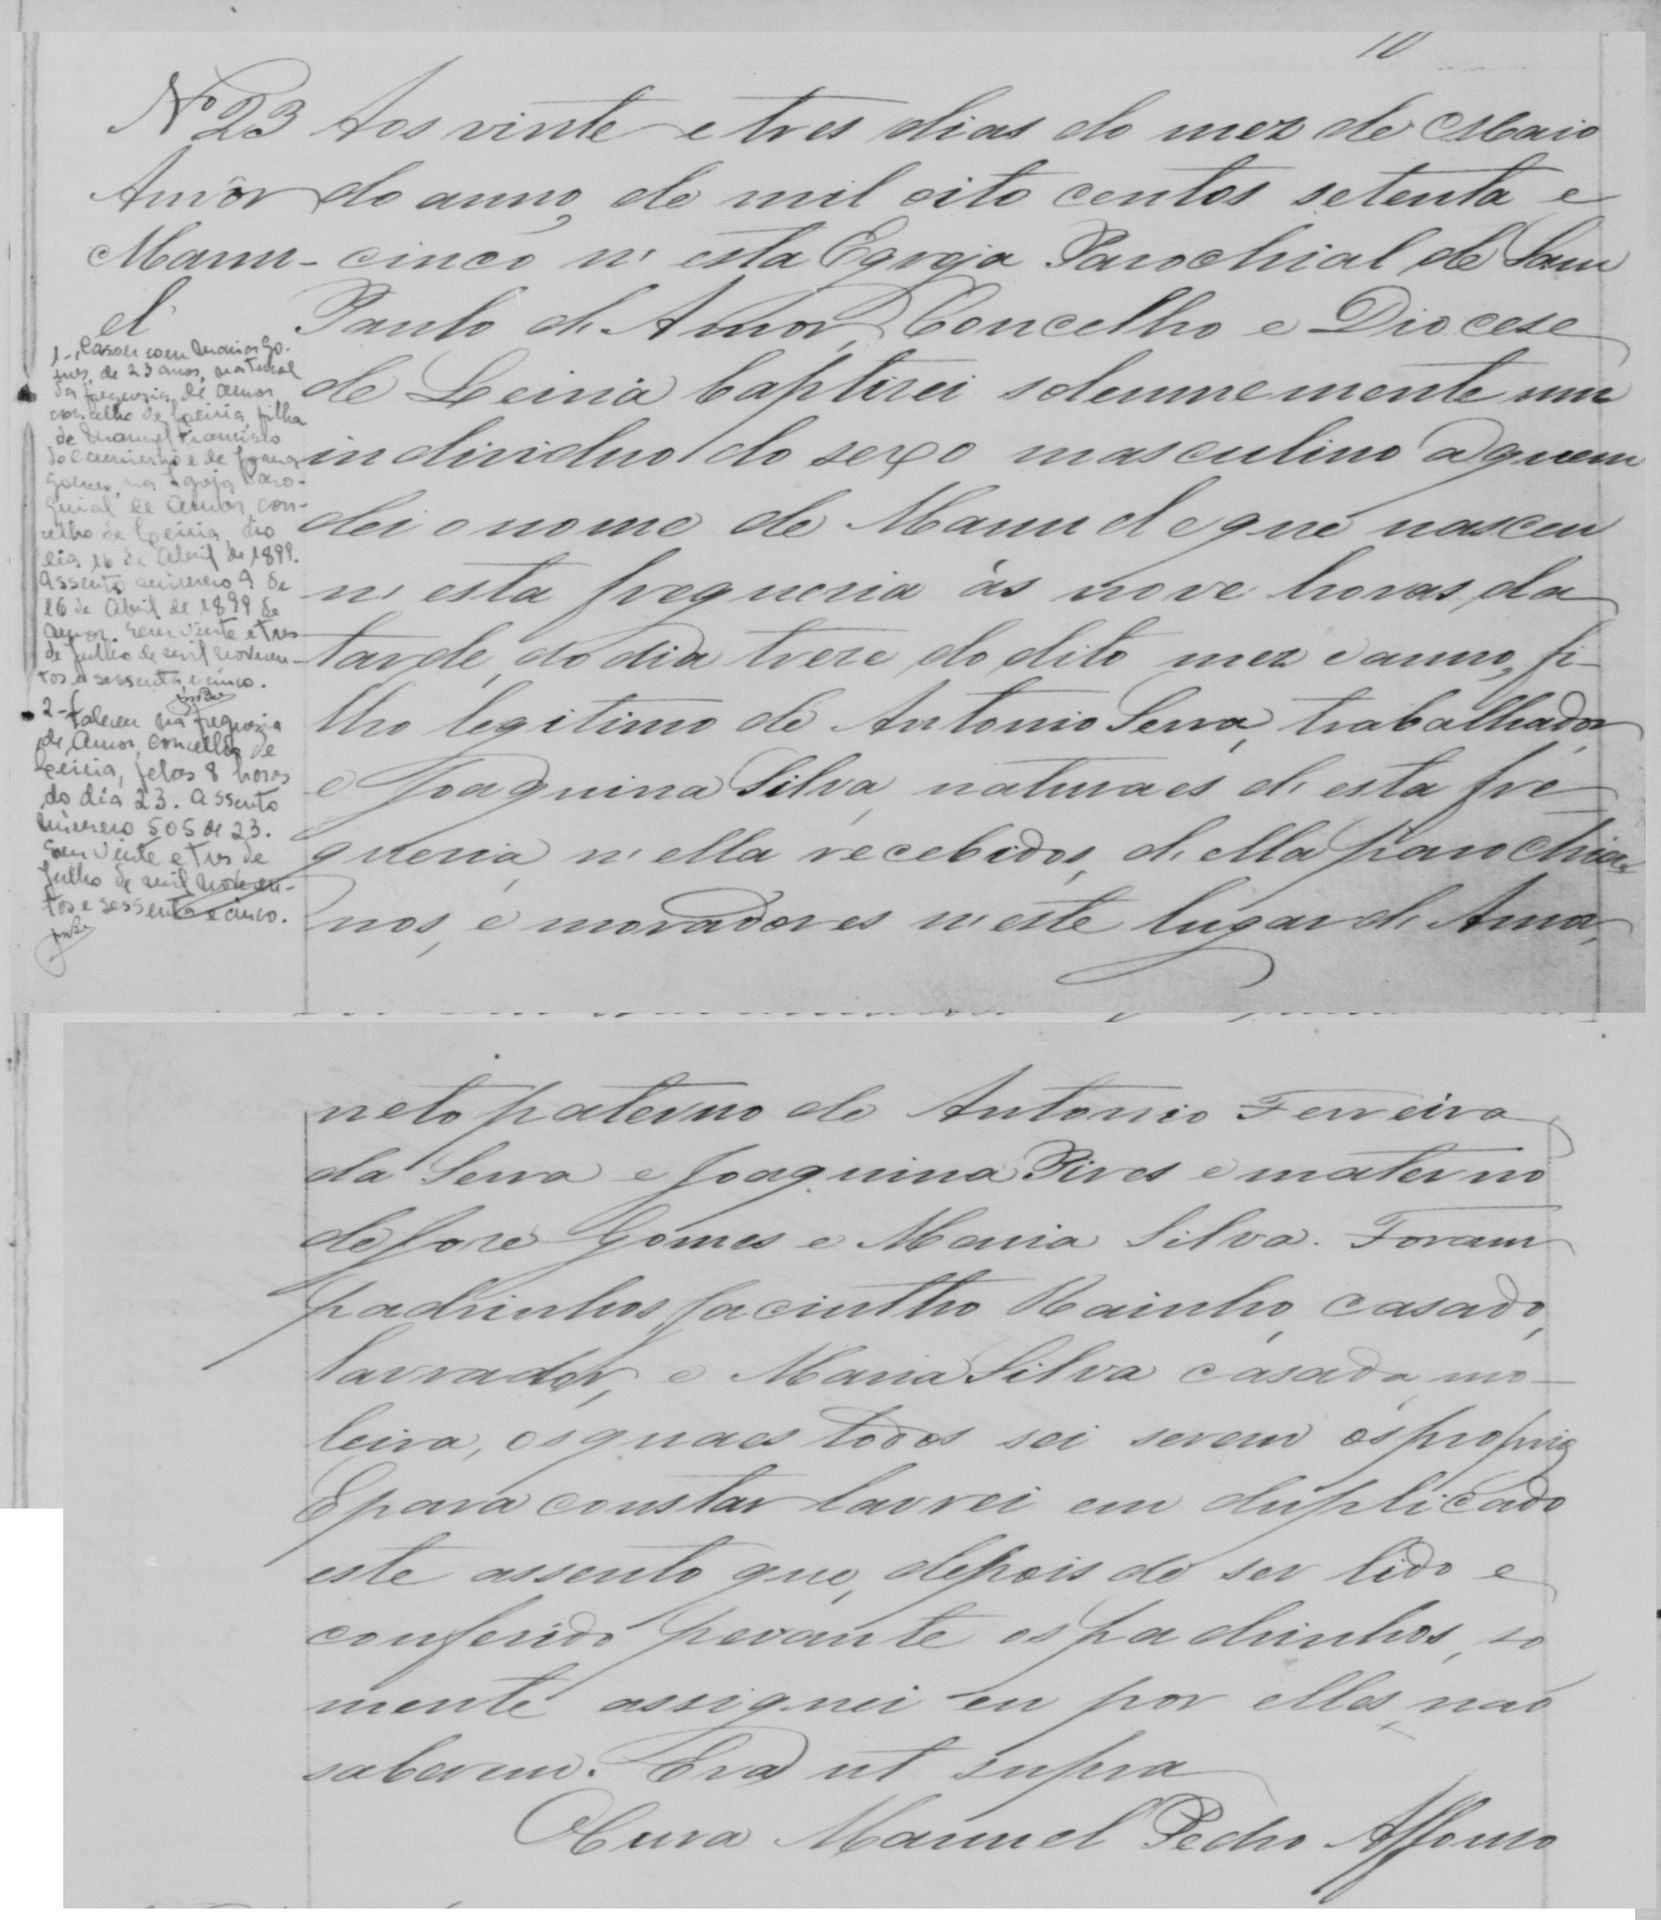 10
Nº 23
Amôr
Manu-
el
1-, Casou com Maria Go-
mes, de 23 anos, natural
da freguesia de Amor
concelho de Leiria, filha
de Manuel Francisco
e de Joana
Gomes, na Igreja Paro-
quial de Amor, con-
celho de Leiria, do
dia 16 de Abril de 1899.
Assento número 9 de
16 de Abril de 1899 de
Amor. Em vinte e tres
de Julho de mil novecen-
tos e sessenta e cinco.
2- Faleceu na freguesia
de Amor, concelho de
Leiria, pelas 8 horas
do dia 23. Assento
número 505 de 23.
Em vinte e tres de
Julho de mil novecen-
tos e sessenta e cinco.
Aos vinte e tres dias do mez de Maio
do anno, de mil oito centos setenta e
cinco n'esta Egreja Parochial de Sam
Paulo d'Amor, Concelho e Diocese
de Leiria baptisei solemnemente um
individuo do sexo masculino a quem
dei o nome de Manuel e que nasceu
n'esta freguezia ás nove horas, da
tarde, do dia treze do dito mez e anno, fi-
lho legitimo de Antonio Serra, trabalhador,
e Joaquina Silva, naturaes d'esta fre-
guezia, n'ella recebidos, d'ella parochia-
nos, e moradores n'este lugar d'Amor,
neto paterno de Antonio Ferreira
da Serra e Joaquina Pires e materno
de José Gomes e Maria Silva. Foram
padrinhos Jacintho Rainho, casado,
lavrador, e Maria Silva casada, mo-
leira, os quaes todos sei serem os proprios
E para constar lavrei em duplicado
este assento que, depois de ser lido e
conferido perante os padrinhos, so
mente assignei eu por elles não
saberem. Era ut supra
O Cura Manuel Pedro Affonso